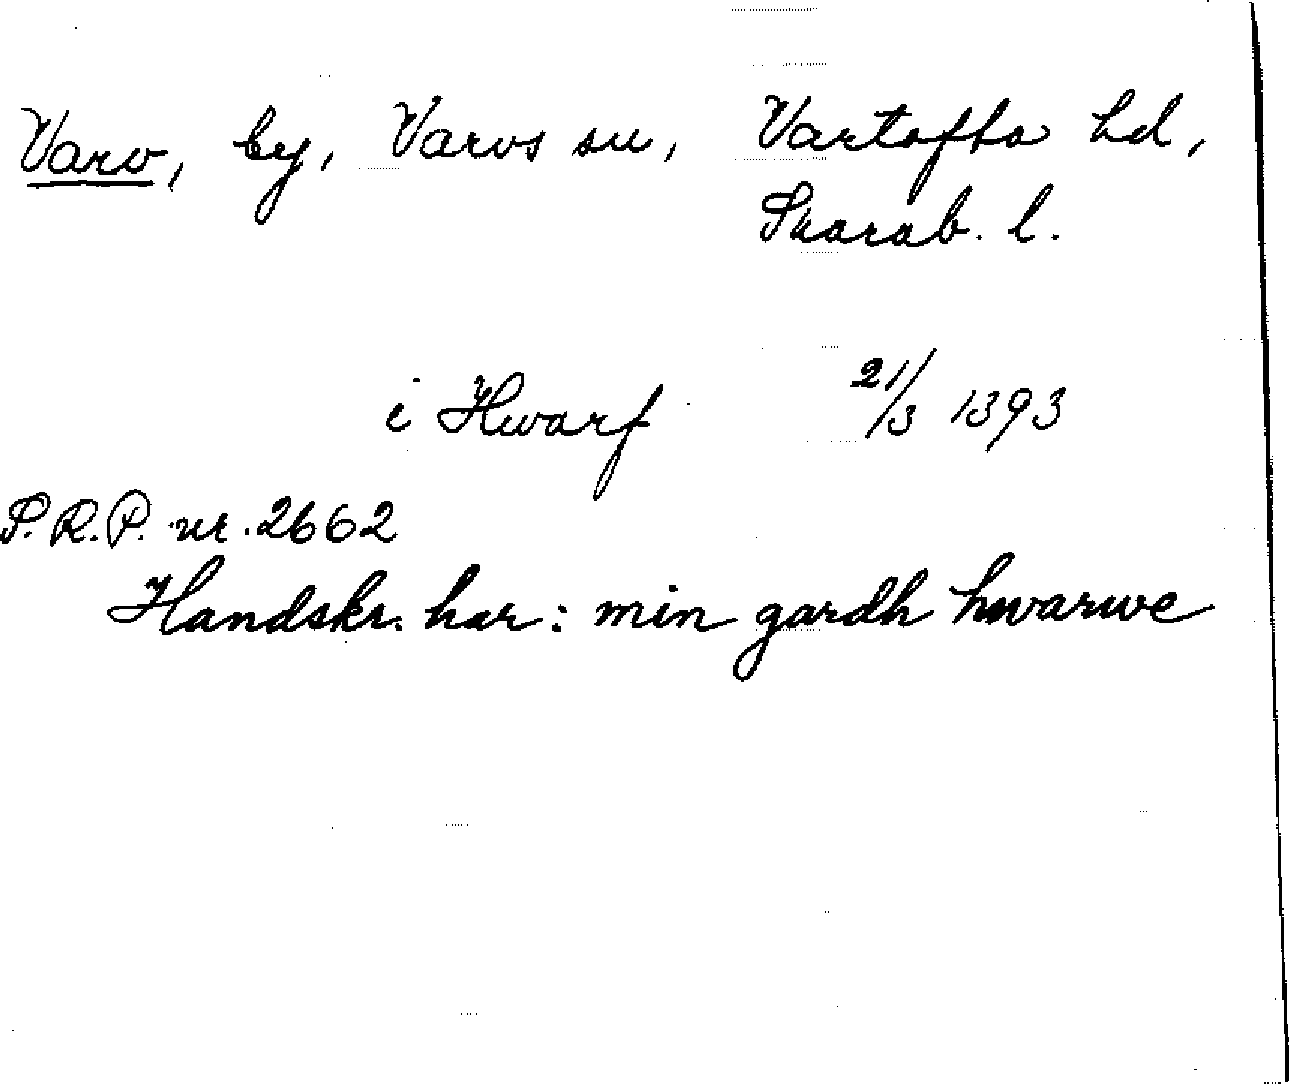 Varv, by, Varvs sn, Vartofta hd,
Skarab. l.
i Hwarf 21/3 1393
S.R.P. nr. 2662
Handskr. har: min gardh hwarwe